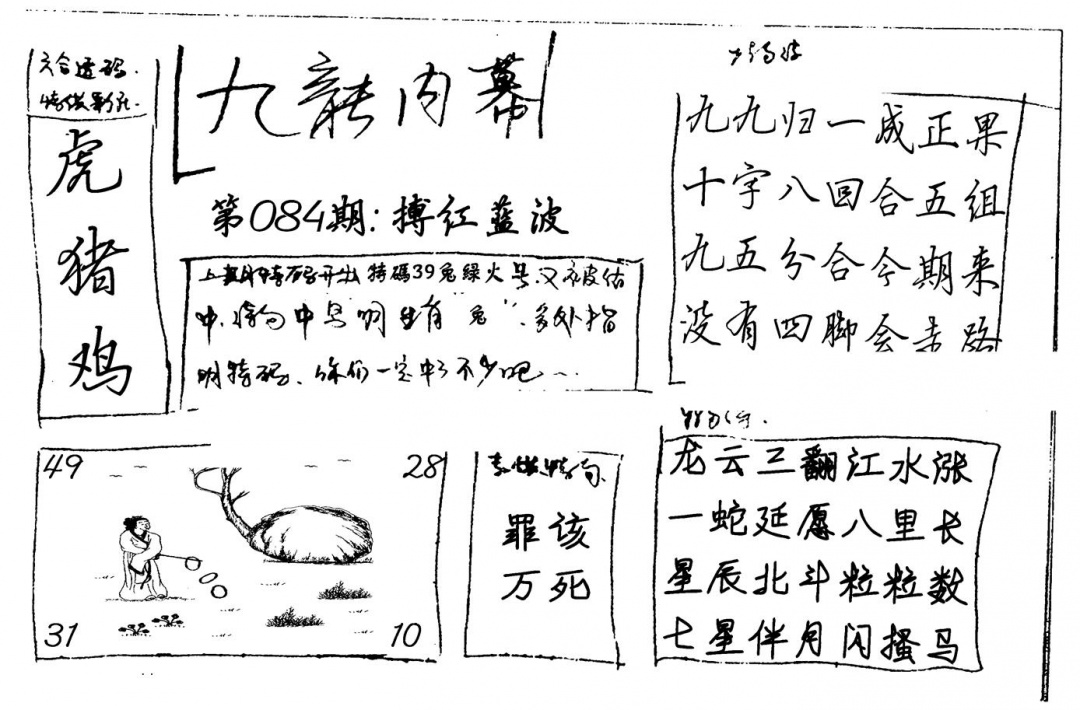 六合透码.
虎
猪
鸡
九龍内幕
第084期:搏红蓝波
上期特码开出特碼39兔绿火号又被估
中.
明特码、你们一定中了不少吧
九九归一成正果
十字八回合五组
九五分合今期来
没有四脚会走路
49
28
31
10
罪该
万死
龙云三翻江水涨
一蛇延愿八里长
星辰北斗粒粒数
七星伴月闪搔马